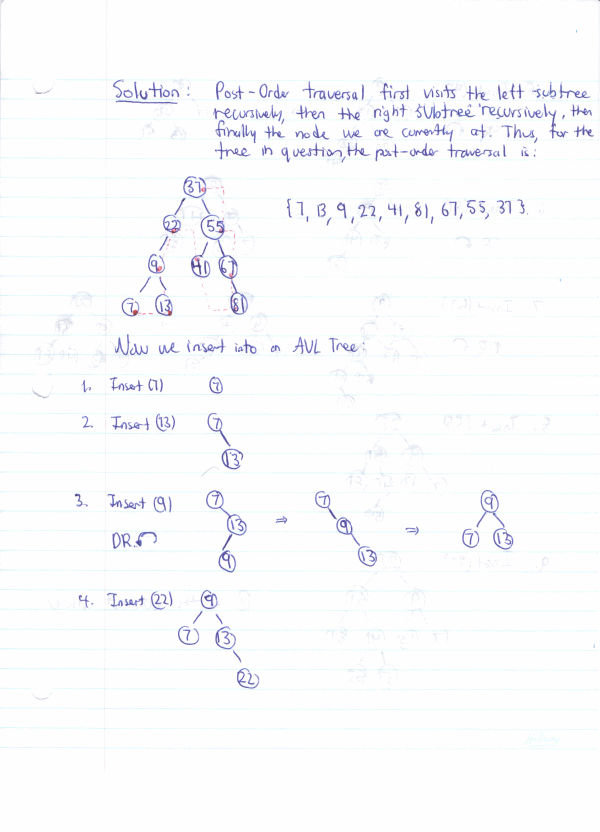 Solution: Post-Order traversal first visits the left subtree
recursively, then the right subtree recursively, then
finally the node we are currently at. Thus, for the
tree in question, the post-order traversal is:
37
{7, 13, 9, 22, 41, 81, 67, 55, 37}.
22 55
9 41 67
7 13 81
Now we insert into an AVL Tree:
1. Insert (7) 7
2. Insert (13) 7
13
3. Insert (9) 7 ⇒ 7 ⇒ 9
13 9 7 13
DR.
9 13
4. Insert (22) 9
7 13
22